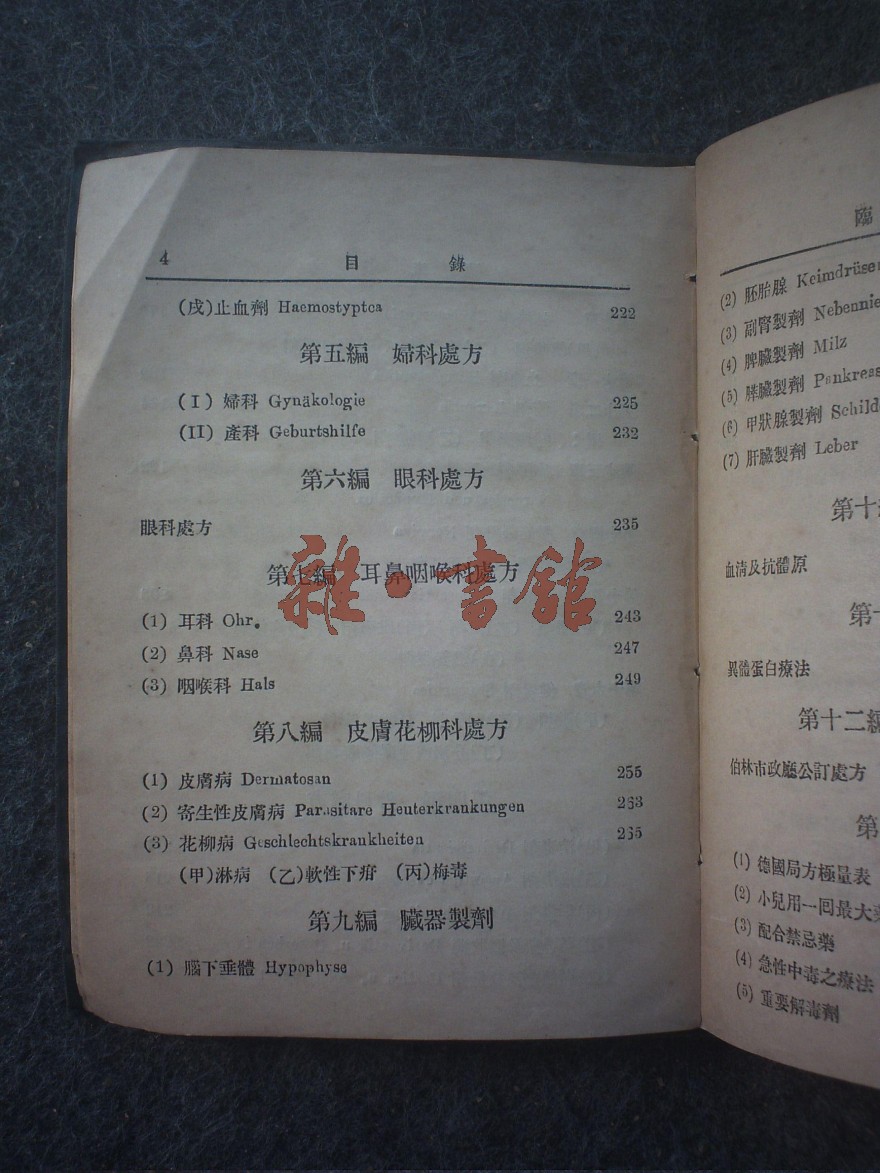 4 目 錄
(戌)止血劑 Haemostyptca 222
第五編 婦科處方
(I) 婦科 Gynäkologie 225
(II) 產科 Geburtshilfe 232
第六編 眼科處方
眼科處方 235
第七編 耳鼻咽喉科處方
雜·書館
(1) 耳科 Ohr. 243
(2) 鼻科 Nase 247
(3) 咽喉科 Hals 249
第八編 皮膚花柳科處方
(1) 皮膚病 Dermatosan 255
(2) 寄生性皮膚病 Parasitare Heuterkrankungen 263
(3) 花柳病 Geschlechtskrankheiten 265
(甲)淋病 (乙)軟性下疳 (丙)梅毒
第九編 臟器製劑
(1) 腦下垂體 Hypophyse
臨
(2) 胚胎腺 Keimdrüsen
(3) 副腎製劑 Nebennie
(4) 脾臟製劑 Milz
(5) 膵臟製劑 Pankreas
(6) 甲狀腺製劑 Schild
(7) 肝臟製劑 Leber
第十
血清及抗體原
第十
異體蛋白療法
第十二編
伯林市政廳公訂處方
第
(1) 德國局方極量表
(2) 小兒用一回最大
(3) 配合禁忌藥
(4) 急性中毒之療法
(5) 重要解毒劑